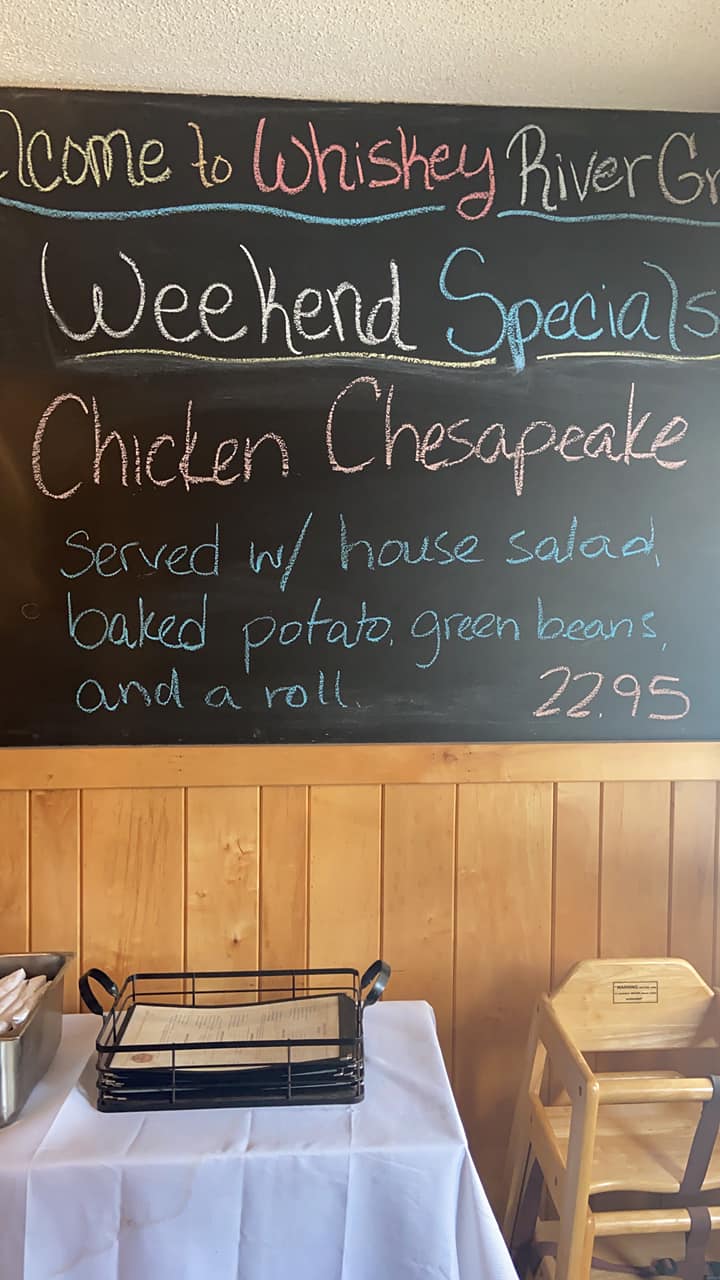 lcome to Whiskey River Gr
Weekend Specials
Chicken Chesapeake
Served w/ house salad,
baked potato, green beans,
and a roll. 22.95
WARNING